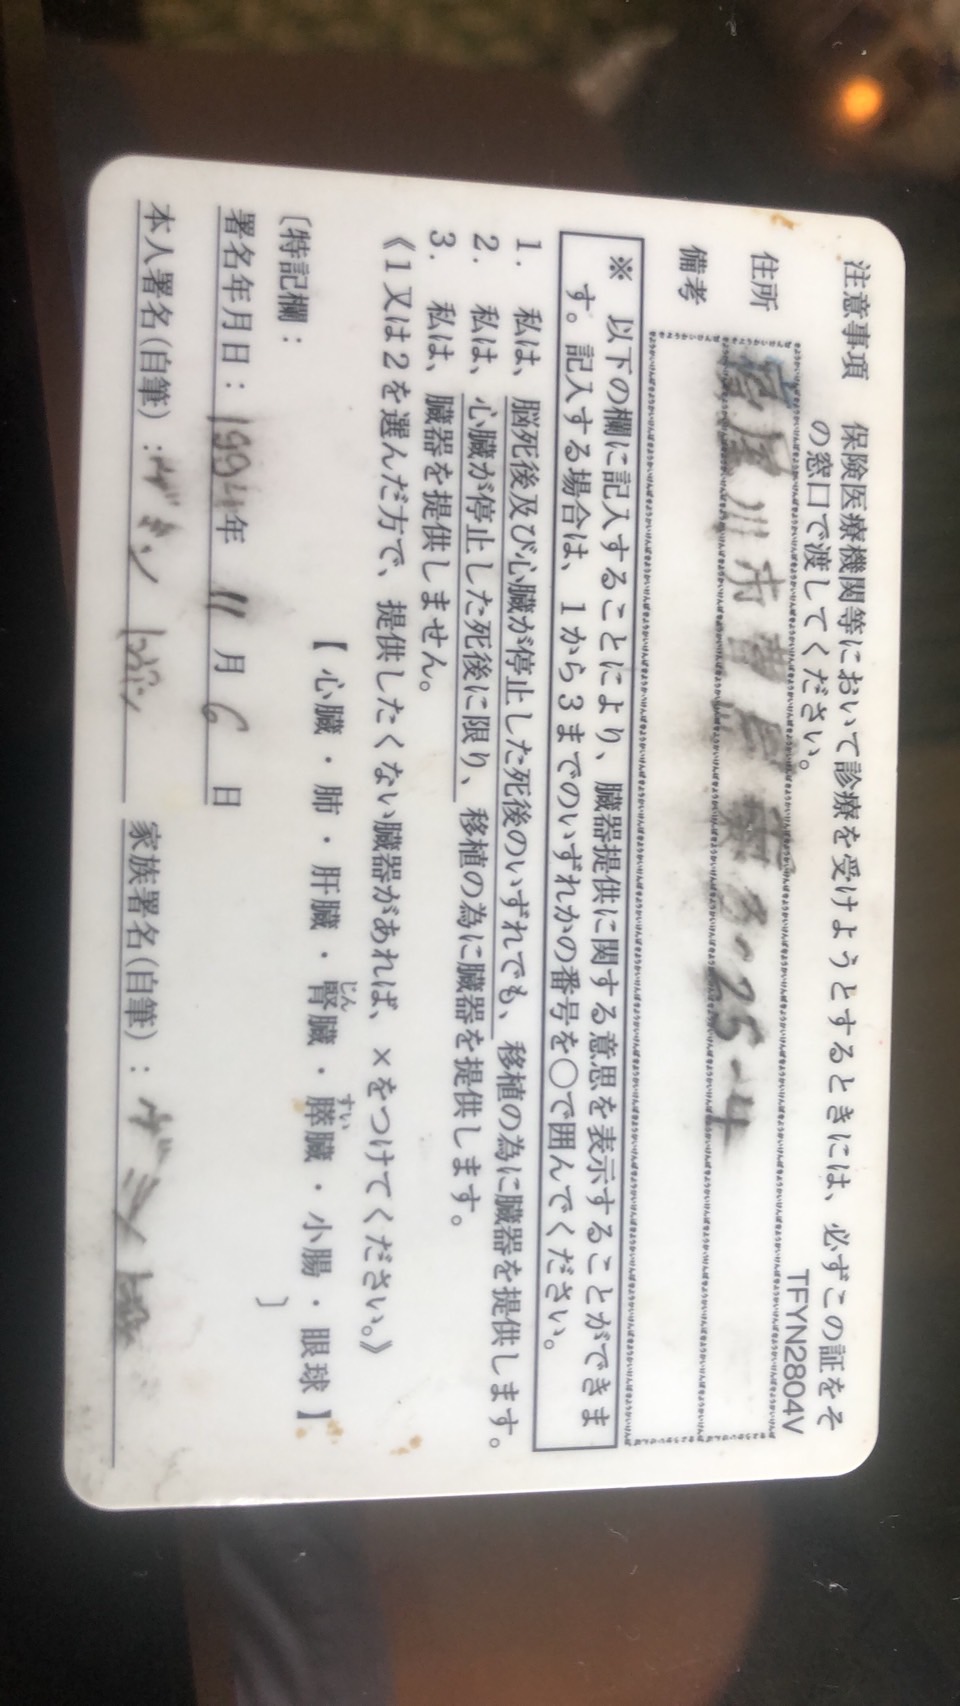 注意事項　保険医療機関等において診療を受けようとするときには、必ずこの証をそ
の窓口で渡してください。
TFYN2804V
住所
川市
3-25-4
備考
※　以下の欄に記入することにより、臓器提供に関する意思を表示することができま
す。記入する場合は、1から3までのいずれかの番号を〇で囲んでください。
1.　私は、脳死後及び心臓が停止した死後のいずれでも、移植の為に臓器を提供します。
2.　私は、心臓が停止した死後に限り、移植の為に臓器を提供します。
3.　私は、臓器を提供しません。
《1又は2を選んだ方で、提供したくない臓器があれば、×をつけてください。》
【 心臓・肺・肝臓・腎臓・膵臓・小腸・眼球 】
じん　すい
〔特記欄：　〕
署名年月日：1994年 11 月 6 日
本人署名(自筆)：　家族署名(自筆)：